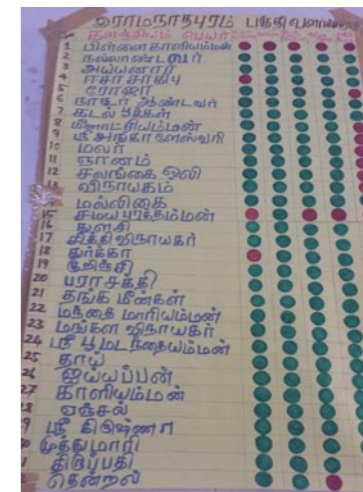 இராமநாதபுரம்
களஞ்சியம் பெயர்
1 பிள்ளைகாளியம்மன்
2 நல்லாண்டவர்
3 அய்யனார்
4
5 ரோஜா
6 நாகூர் ஆண்டவர்
7 கடல் பூக்கள்
8 மீனாட்சியம்மன்
9 ஸ்ரீ அங்காளேஸ்வரி
10 மலர்
11 ஞானம்
12 சலங்கை ஒலி
13 விநாயகம்
மல்லிகை
15 சமயபுரத்தம்மன்
16 துளசி
17 சித்தி விநாயகர்
18 துர்க்கா
19 குறிஞ்சி
20 பராசக்தி
21 தங்க மீன்கள்
22 மந்தை மாரியம்மன்
23 மங்கள விநாயகர்
24 ஸ்ரீ பூமடந்தையம்மன்
25 தாய்
26 ஐய்யப்பன்
27 காளியம்மன்
28 ஊஞ்சல்
29 ஸ்ரீ கிருஷ்ணா
30 முத்துமாரி
திருப்பதி
தென்றல்